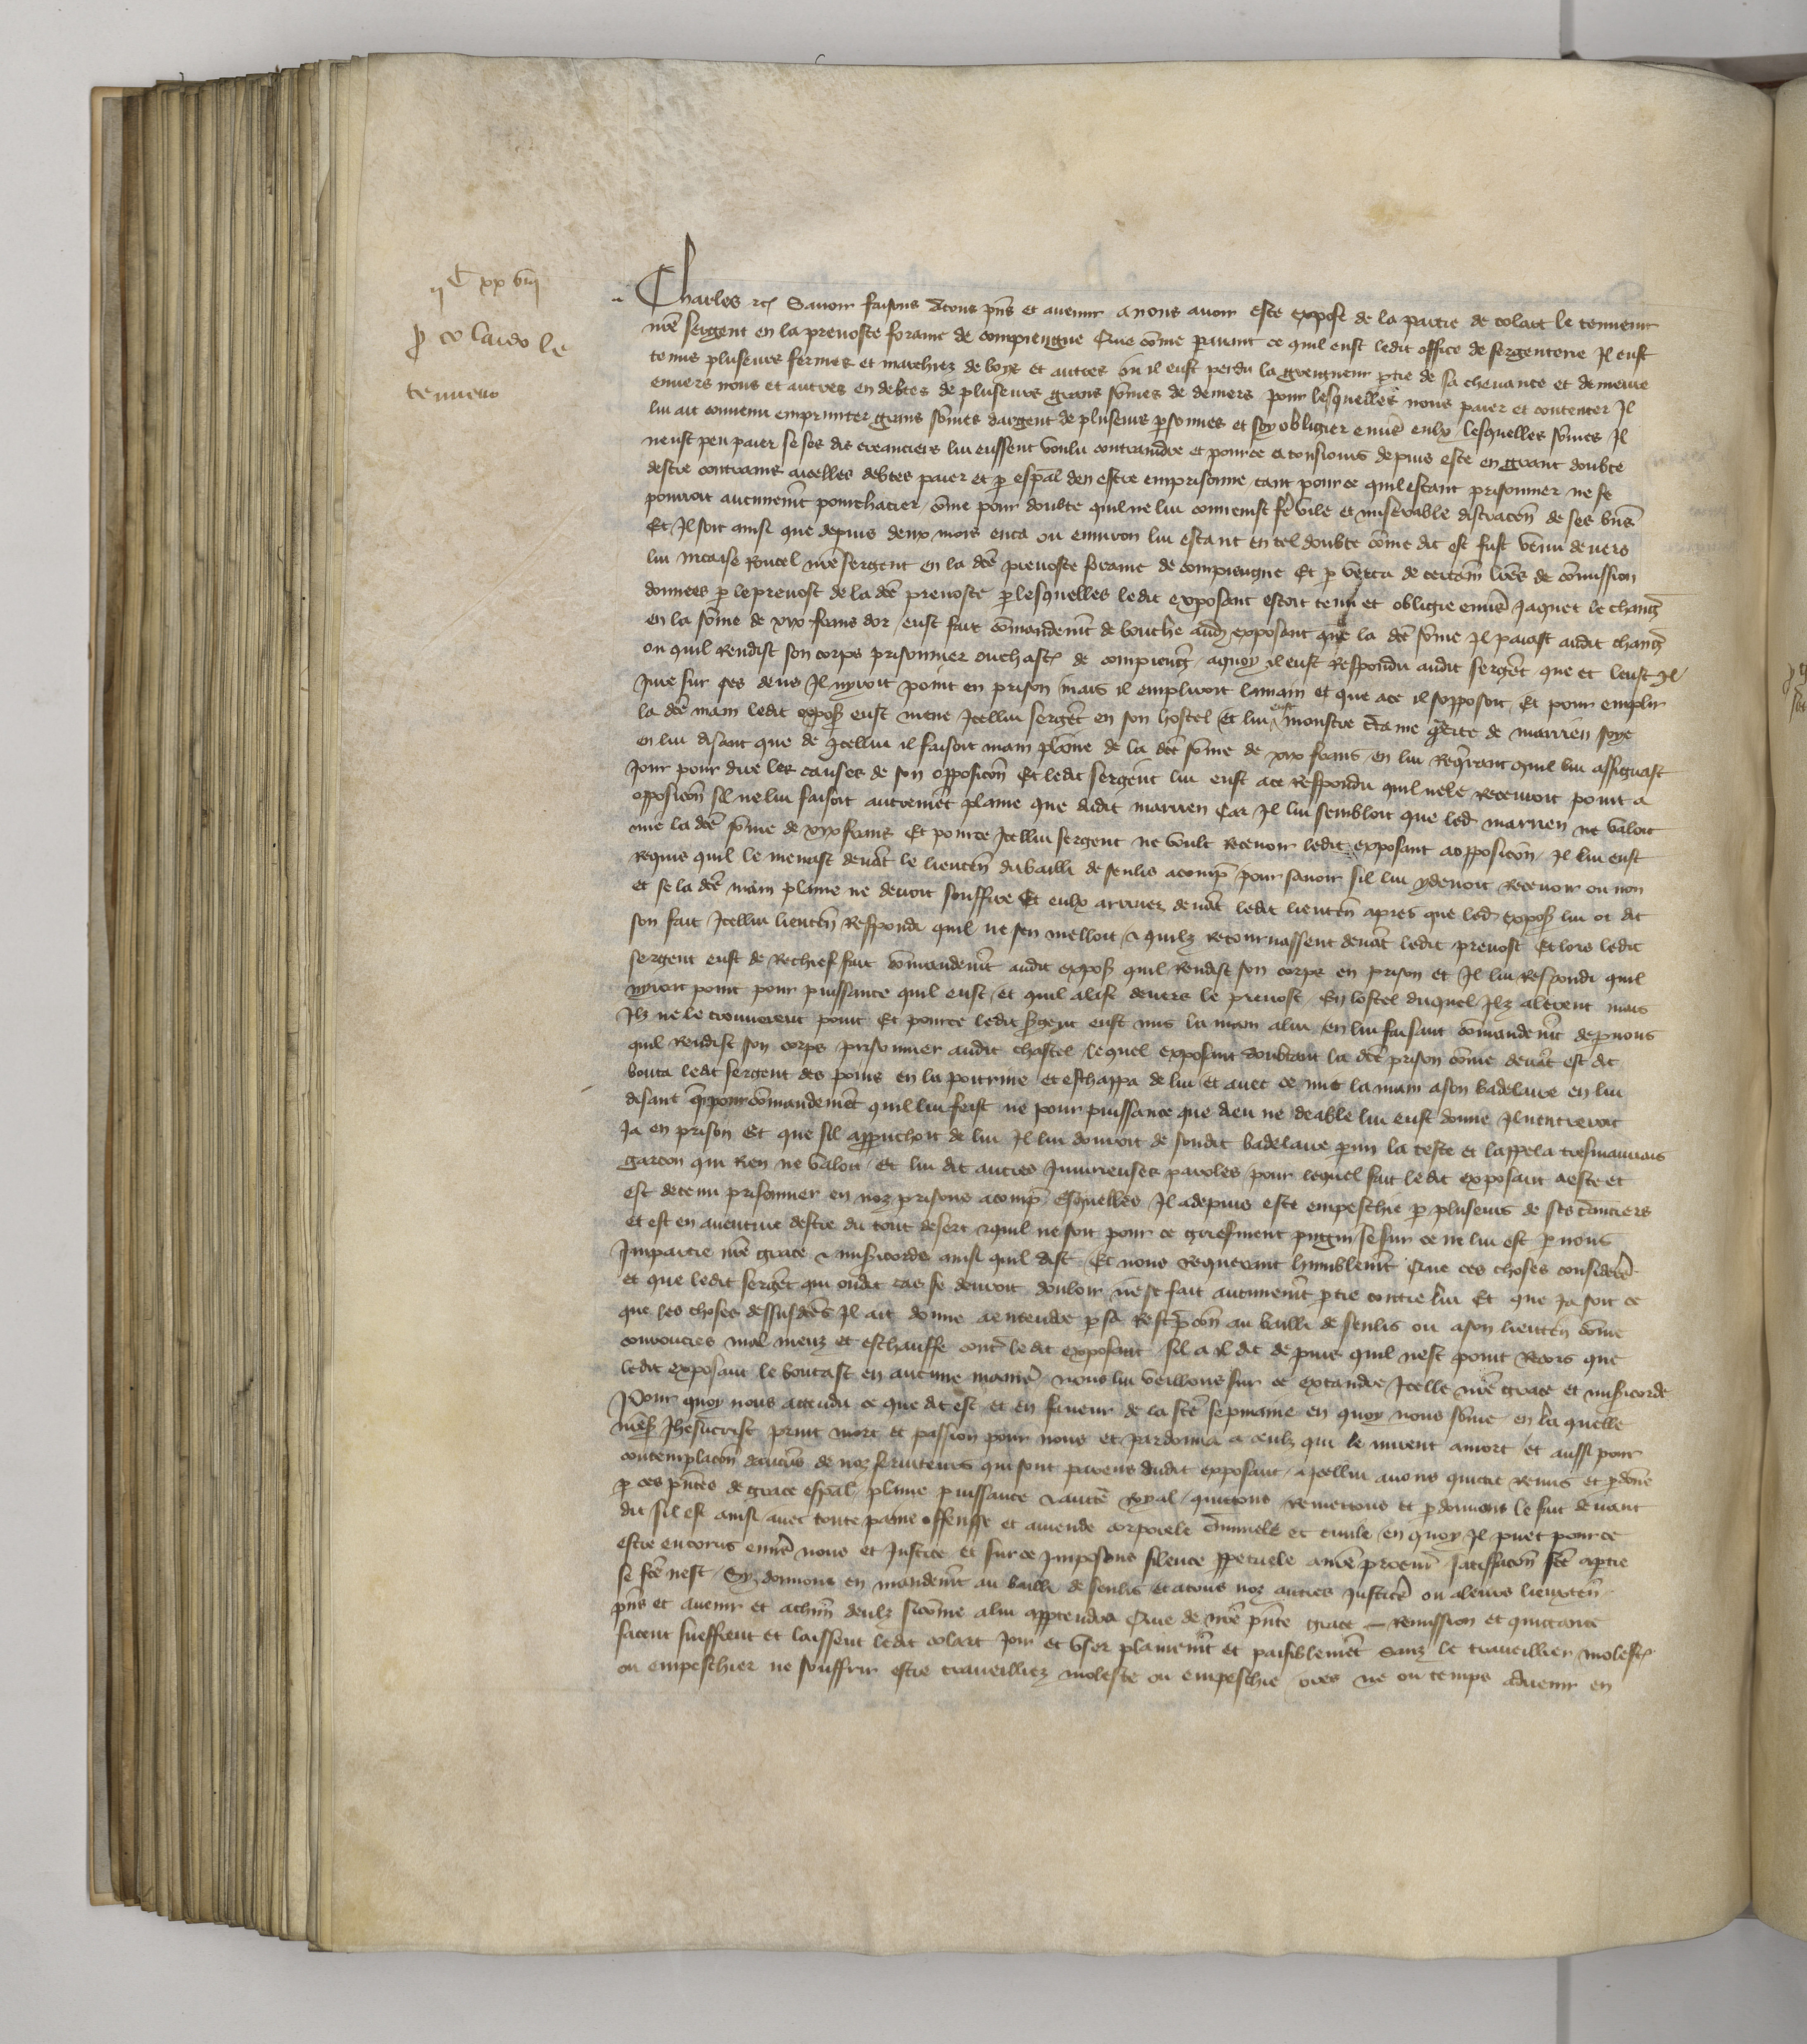 ii C xx viii
p colardo le
tenneur
Charles etc Savoir faisons atous pns et avenir anous avoir este expose de la partie de colart le tenneur
nre sergent en la prevoste foraine de compiengne Que come paravant ce quil eust ledit office de sergenterie Il eust
tenus pluseurs fermes et marchiez de boys et autres ou il eust perdu la greigneur ptie de sa chevance et demeure
envers nous et autres en debtes de pluseurs grans somes de deniers pour lesquelles nous paier et contenter Il
lui ait convenu emprunter grans somes dargent de pluseurs psonnes et soy obligier envs eulx lesquelles somes Il
neust peu paier se ses dis creanciers lui eussent voulu contraindre et pource a tousiours depuis este en grant doubte
destre contrains aicelles debtes paier et p espal den estre emprisonne tant pource quil estant prisonnier ne se
pourroit aucunemt pourchacier come pour doubte quil ne lui convenist fe vile et miserable distracon de ses bns
Et Il soit ainsi que depuis deux mois enca ou environ lui estant en tel doubte come dit est fust venu devers
lui nicaise Roucel nre sergent en la dce prevoste foraine de compiengne Et p vertu de certain lres de comission
donnees p le prevost de la dce prevoste p lesquelles ledit exposant estoit tenu et obligie envs Jaquet le chang
en la some de xix frans dor eust fait comandemt de bouche aud exposant que la dce some Il paiast audit chang
ou quil Rendist son corps prisonnier ou chast de compieng aquoy il eust Respondu audit sergt que et leust Il
Jure sur ses dens Il nyroit point en prison mais il empliroit la main et que ace il sopposoit Et pour emplir
la dce main ledit expos eust mene Icellui sergt en son hostel et lui eust monstre ctaine qtite de marrien soye
en lui disant que de Icellui il faisoit main plaine de la dce some de xix frans en lui Requrant quil lui assignast
Jour pour dire les causes de son opposicon Et ledit sergent lui eust ace Respondu quil nele Recevroit point a
opposicon sil ne lui faisoit autremet plaine que dudit marrien Car Il lui sembloit que led marrien ne valoit
mie la dce some de xix frans Et pource Icellui sergent ne voult Recevoir ledit exposant aopposicon Il lui eust
requis quil le menast devat le lieuten du bailli de senlis acomp pour savoir sil lui y devoit Recevoir ou non
et se la dce main plaine ne devoit souffire Et eulx arrivez devat ledit lieuten apres que led expos lui ot dit
son fait Icellui lieuten Respondi quil ne sen melloit et quilz retournassent devat ledit prevost Et lors ledit
sergent eust de Rechief fait comandemt audit expos quil Rendist son corps en prison et Il lui Respondi quil
nyroit point pour puissance quil eust et quil alast devers le prevost En lostel duquel Ilz alerent mais
Ilz ne le trouverent point Et pource ledit sgent eust mis la main alui en lui faisant comandemt de p nous
quil Rendist son corps prisonnier audit chastel lequel exposant doubtant la dce prison come devat est dit
bouta ledit sergent des poins en la poitrine et eschappa de lui et avec ce mit la main ason badelaire en lui
disant que pour comandemet quil lui feist ne pour puissance que dieu ne deable lui eust donne Il nentreroit
Ja en prison Et que sil approuchoit de lui Il lui donroit de sondit badelaire pmi la teste et lappela tresmauvais
garcon qui Rien ne valoit Et lui dit autres Iniurieuses paroles pour lequel fait ledit exposant aeste et
est detenu prisonnier en noz prisons acomp Esquelles Il adepuis este empeschie p pluseurs de ses canciers
et est en aventure destre du tout desert et quil ne soit pour ce griefment pugni se sur ce ne lui est p nous
Impartie nre grace et misicorde ainsi quil dist Et nous requerant humblemt Que ces choses considees
et que ledit sergt qui oudit cas se devroit douloir nest fait aucunemt ptie contre lui Et que Ja soit ce
que les choses dessusdces Il ait donne aentendre p sa Rescpcon au bailli de senlis ou ason lieuten come
couroucies mal meuz et eschauffe cont ledit exposant sil a il dit depuis quil nest point Recors que
ledit exposant le boutast en aucune maniere nous lui veillons sur ce extandre Icelle nre grace et misicorde
Pour quoy nous attendu ce que dit est et en faveur de la ste sepmaine en quoy nous some en la quelle
nres Jhesucrist print mort et passion pour nous et pardonna a ceulx qui le mirent amort et aussi pour
contemplacon daucus de noz serviteurs qui sont parens dudit exposant aIcellui avons quictie Remis et pdone
p ces pntes de grace espal plaine puissance et aucte Royal quictons remettons et pdonnons le fait devant
dit sil est ainsi avec toute paine offense et amende corporele cminele et civile en quoy Il puet pource
estre encorus envs nous et Justice et sur ce Imposons silence ppetuele anre procur satisfacon fce aptie
se fce nest Sy donnons en mandemt au bailli de senlis et atous noz autres Justics ou aleurs lieuxten
pns et avenir et achun deulx sicome alui apptendra Que de nre pnte grace Remission et quictance
facent sueffrent et laissent ledit colart Joir et user plainemt et paisiblemt Sanz le traveillier molest
ou empeschier ne souffrir estre traveilliez moleste ou empeschie ores ne ou temps advenir en